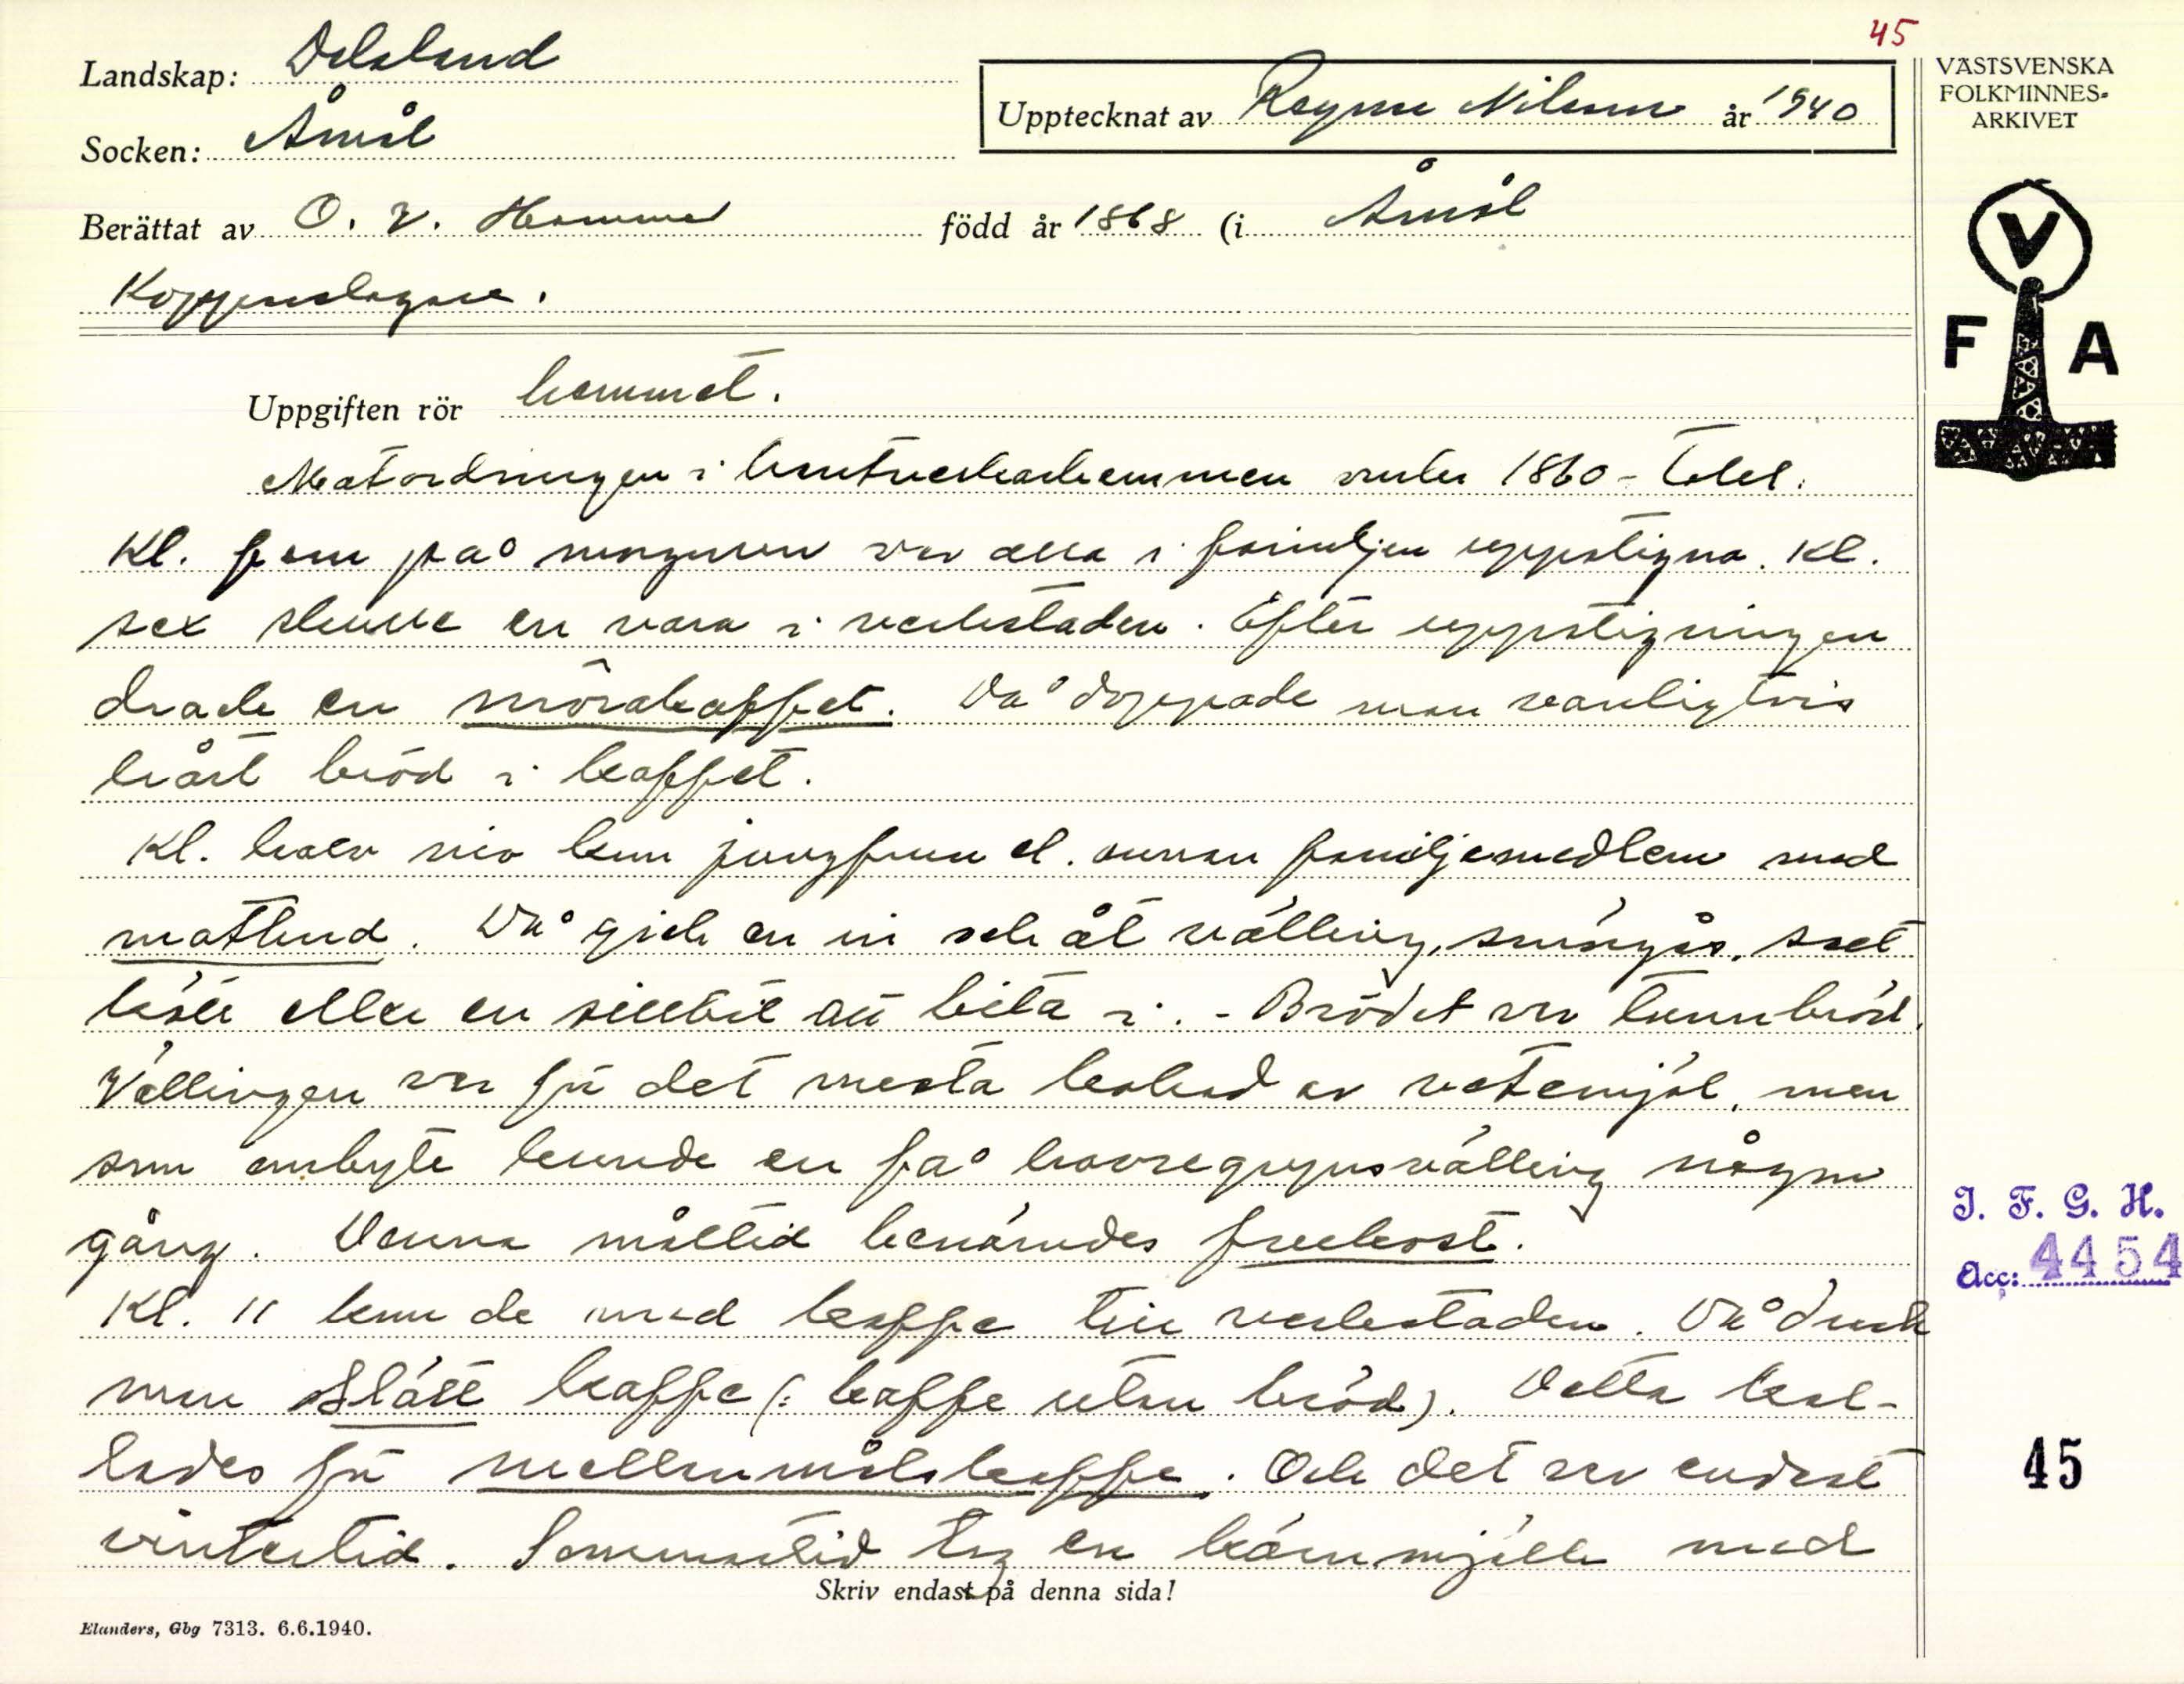 45
Landskap: Dalsland
Socken: Åmål
Upptecknat av Ragnar Nilsson år 1940
VÄSTSVENSKA
FOLKMINNES-
ARKIVET
Berättat av O. V. Hammar född år 1868 (i Åmål
Kopparslagare.
V
F A
Uppgiften rör hemmet.
Matordningen i hantverkarhemmen under 1860-talet.
Kl. fem på morgonen var alla i familjen uppstigna. Kl.
sex skulle en vara i verkstaden. Efter uppstigningen
drack en mörakaffet. Då doppade man vanligtvis
hårt bröd i kaffet.
Kl. halv nio kom jungfrun el. annan familjemedlem med
matbud. Då gick en in och åt välling, smörgås,
eller en sillbit att bita i. - Brödet var tunnbröd.
Vällingen var för det mesta kokad av vetemjöl, men
som ombyte kunde en få havregrynsvälling någon
gång. Denna måltid benämdes frukost.
Kl. 11 kom de med kaffe till verkstaden. Då drack
man slätt kaffe (: kaffe utan bröd). Detta kal-
lades för mellanmålskaffe. Och det var endast
vintertid. Sommartid tog en kärnmjölk med
Skriv endast på denna sida!
Elanders, Gbg 7313. 6.6.1940.
I. F. G. H.
Acc: 4454
45